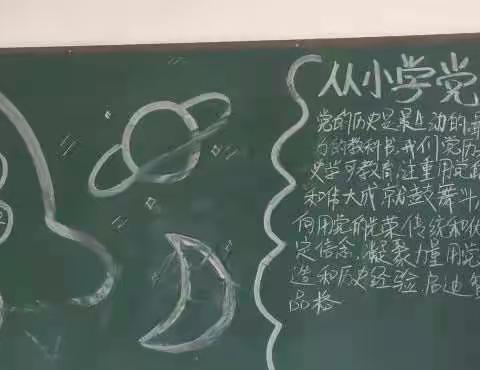 从小学党
党的历史是最生动的最
为的教科书,我们党历
史学习教育,注重用党
和伟大成就鼓舞斗
向用党的光荣传统和优
定信念,凝聚力量用党
造和历史经验启迪智
品格